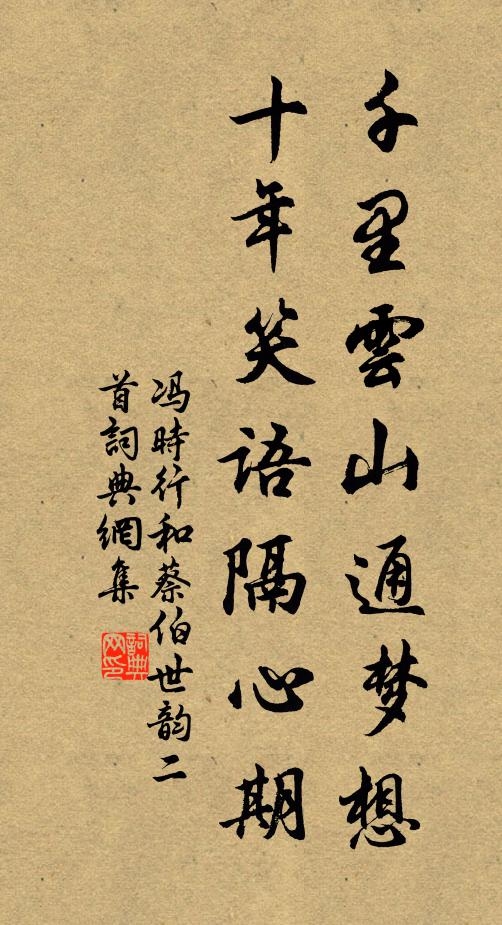 千里雲山通梦想
十年笑语隔心期
冯時行和蔡伯世韵二
首詞典網集
詞典网印